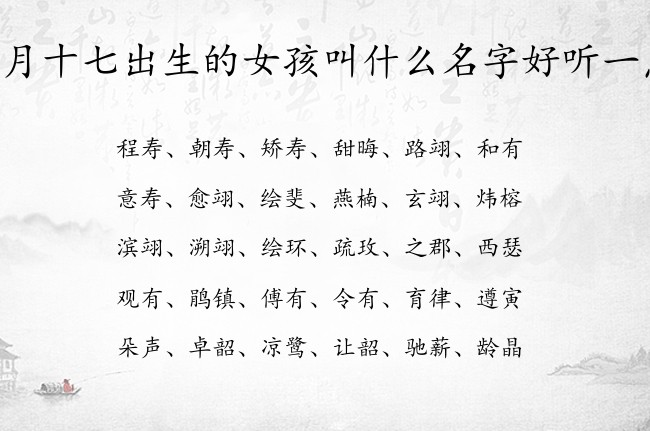 月十七出生的女孩叫什么名字好听一
程寿、朝寿、矫寿、甜晦、路翊、和有
意寿、愈翊、绘斐、燕楠、玄翊、炜榕
滨翊、溯翊、绘环、疏玫、之郡、西瑟
观有、鹃镇、傅有、令有、育律、遵寅
朵声、卓韶、凉鹭、让韶、驰薪、龄晶